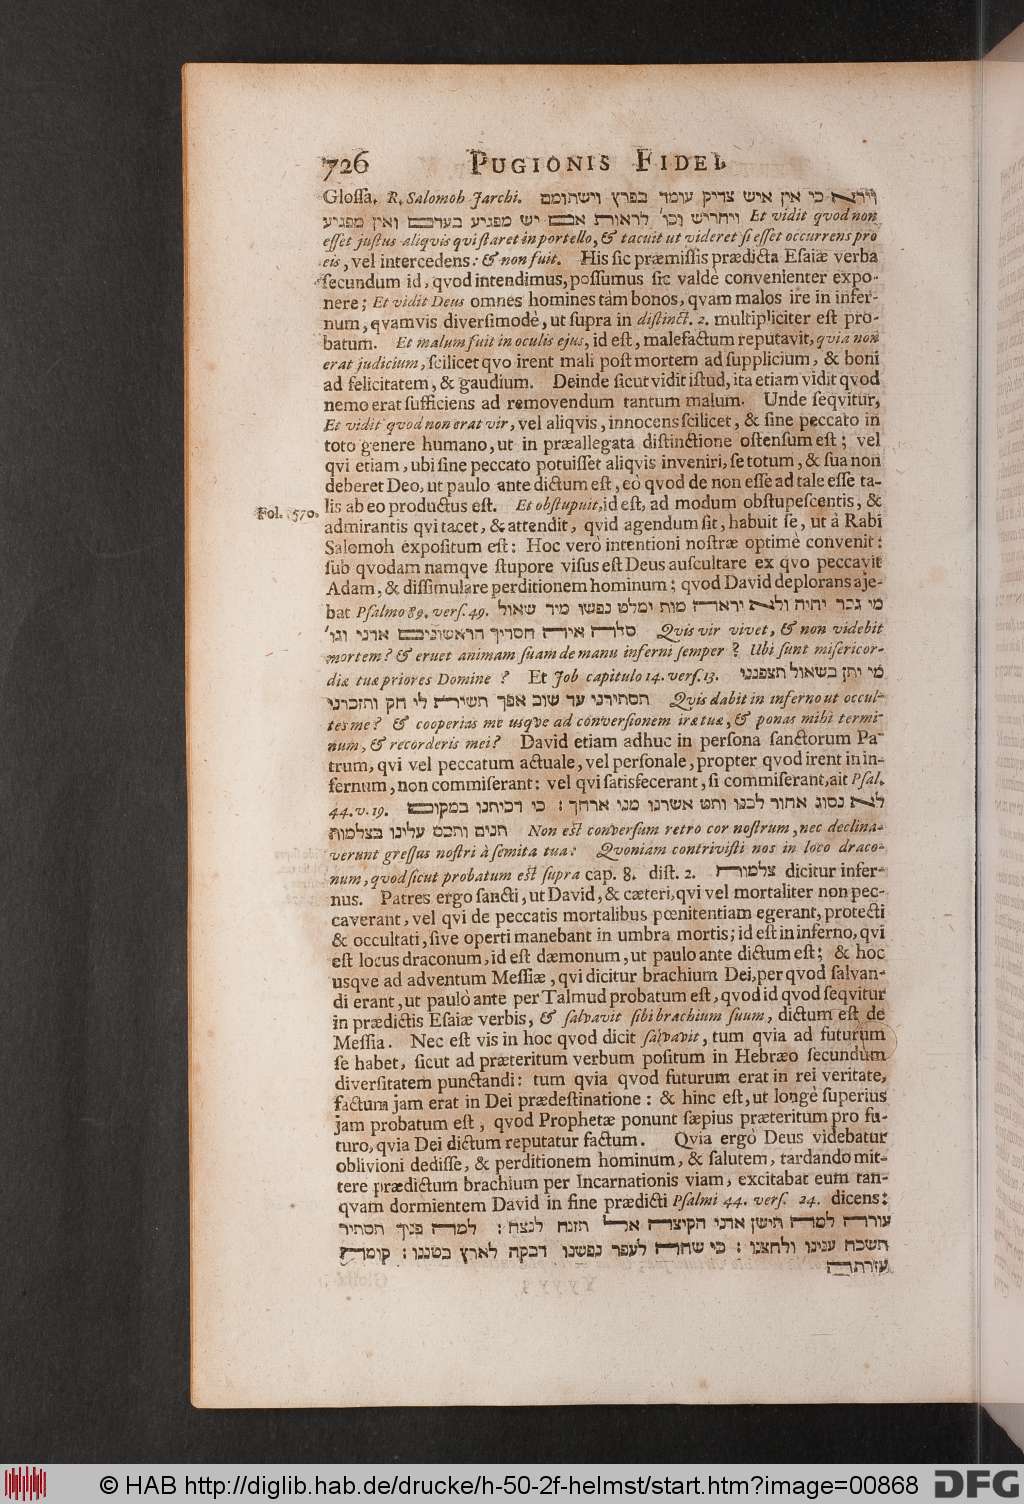 726 PUGIONIS FIDEI
Glossa. R. Salomoh Jarchi. וירא כי אין איש צדיק עומד בפרץ וישתומם
ויחריש וכו' לראות אם יש מפגיע בעדם ואין מפגיע Et vidit qvod non
esset justus aliqvis qvi staret in portello, & tacuit ut videret si esset occurrens pro
eis, vel intercedens: & non fuit. His sic præmissis prædicta Esaiæ verba
secundum id, qvod intendimus, possumus sic valdè convenienter expo-
nere; Et vidit Deus omnes homines tàm bonos, qvam malos ire in infer-
num, qvamvis diversimodè, ut supra in distinct. 2. multipliciter est pro-
batum. Et malum fuit in oculis ejus, id est, malefactum reputavit, qvia non
erat judicium, scilicet qvo irent mali post mortem ad supplicium, & boni
ad felicitatem, & gaudium. Deinde sicut vidit istud, ita etiam vidit qvod
nemo erat sufficiens ad removendum tantum malum. Unde seqvitur,
Et vidit qvod non erat vir, vel aliqvis, innocens scilicet, & sine peccato in
toto genere humano, ut in præallegata distinctione ostensum est; vel
qvi etiam, ubi sine peccato potuisset aliqvis inveniri, se totum, & sua non
deberet Deo, ut paulo ante dictum est, eò qvod de non esse ad tale esse ta-
lis ab eo productus est. Et obstupuit, id est, ad modum obstupescentis, &
Fol. 570.
admirantis qvi tacet, & attendit, qvid agendum sit, habuit se, ut à Rabi
Salomoh expositum est: Hoc verò intentioni nostræ optimè convenit:
sub qvodam namqve stupore visus est Deus auscultare ex qvo peccavit
Adam, & dissimulare perditionem hominum; qvod David deplorans aje-
bat Psalmo 89. vers. 49. מי גבר יחיה ולא יראה מות ימלט נפשו מיד שאול
סלה איה חסדיך הראשונים אדני וגו' Qvis vir vivet, & non videbit
mortem? & eruet animam suam de manu inferni semper? Ubi sunt misericor-
diæ tuæ priores Domine? Et Job capitulo 14. vers. 13. מי יתן בשאול תצפנני
תסתירני עד שוב אפך תשית לי חק ותזכרני Qvis dabit in inferno ut occul-
tes me? & cooperias me usqve ad conversionem iræ tuæ, & ponas mihi termi-
num, & recorderis mei? David etiam adhuc in persona sanctorum Pa-
trum, qvi vel peccatum actuale, vel personale, propter qvod irent in in-
fernum, non commiserant: vel qvi satisfecerant, si commiserant, ait Psal.
44. v. 19. לא נסוג אחור לבנו ותט אשרנו מני ארחך: כי דכיתנו במקום
תנים ותכס עלינו בצלמות Non est conversum retro cor nostrum, nec declina-
verunt gressus nostri à semita tua: Qvoniam contrivisti nos in loco draco-
num, qvod sicut probatum est supra cap. 8. dist. 2. צלמות dicitur infer-
nus. Patres ergo sancti, ut David, & cæteri, qvi vel mortaliter non pec-
caverant, vel qvi de peccatis mortalibus pœnitentiam egerant, protecti
& occultati, sive operti manebant in umbra mortis; id est in inferno, qvi
est locus draconum, id est dæmonum, ut paulo ante dictum est; & hoc
usqve ad adventum Messiæ, qvi dicitur brachium Dei, per qvod salvan-
di erant, ut paulò ante per Talmud probatum est, qvod id qvod seqvitur
in prædictis Esaiæ verbis, & salvavit sibi brachium suum, dictum est de
Messia. Nec est vis in hoc qvod dicit salvavit, tum qvia ad futurum
se habet, sicut ad præteritum verbum positum in Hebræo secundum
diversitatem punctandi: tum qvia qvod futurum erat in rei veritate,
factum jam erat in Dei prædestinatione: & hinc est, ut longè superius
jam probatum est, qvod Prophetæ ponunt sæpius præteritum pro fu-
turo, qvia Dei dictum reputatur factum. Qvia ergò Deus videbatur
oblivioni dedisse, & perditionem hominum, & salutem, tardando mit-
tere prædictum brachium per Incarnationis viam, excitabat eum tan-
qvam dormientem David in fine prædicti Psalmi 44. vers. 24. dicens:
עורה למה תישן אדני הקיצה אל תזנח לנצח: למה פניך תסתיר
תשכח ענינו ולחצנו: כי שחה לעפר נפשנו דבקה לארץ בטננו: קומה
עזרתה
© HAB http://diglib.hab.de/drucke/h-50-2f-helmst/start.htm?image=00868 DFG